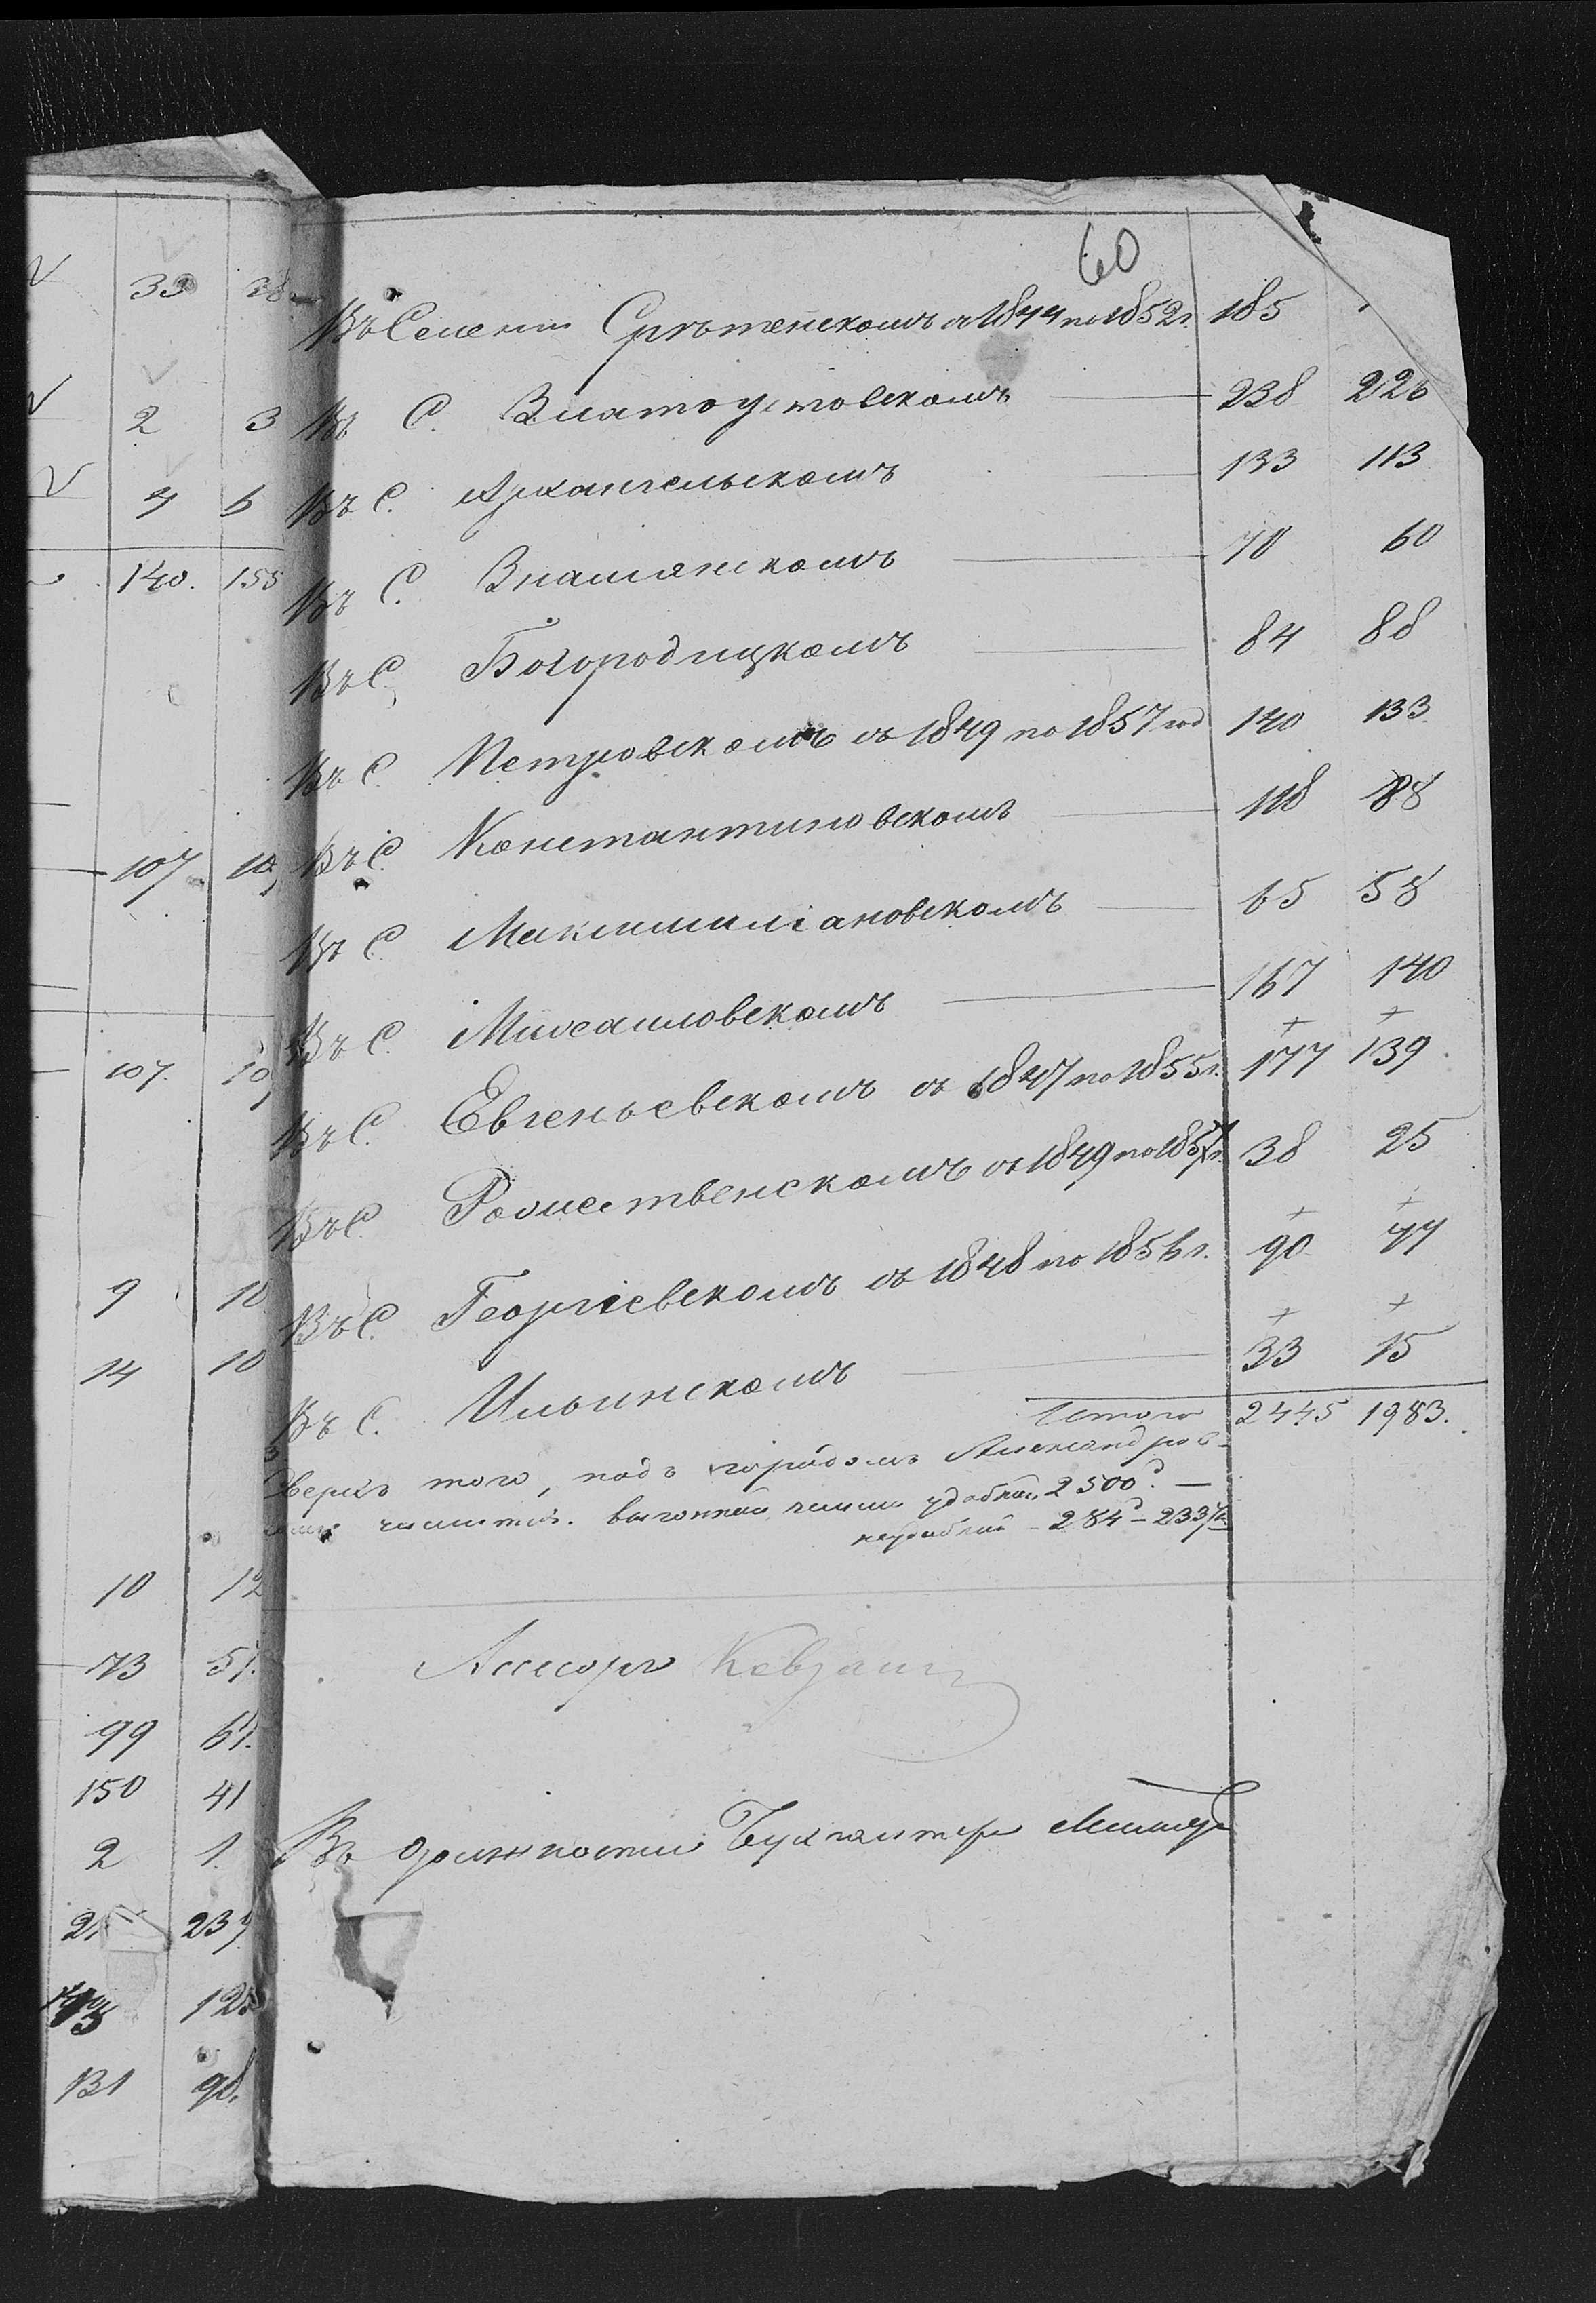 33
2 3
4 6
140. 155
107
107.
9 10
14 10
10 12
73 57.
99 67.
150 41
2 1.
237
131 98.
60
Въ Селеніи Срѣтенскомъ съ 1844 по 1852 г. 185
Въ С. Златоустовскомъ 238 226
Въ С. Архангельскомъ 133 113
Въ С. Знаменскомъ 70 60
Въ С. Богородицкомъ 84 88
Въ С. Петровскомъ съ 1849 по 1857 год 140 133
Въ С. Константиновскомъ 118 88
Въ С. Максимиліановскомъ 65 58
Въ С. Михайловскомъ 167 140
Въ С. Евгеньевскомъ съ 1847 по 1855 г. 177 139
Въ С. Рождественскомъ съ 1849 по 1857 г. 38 25
Въ С. Георгіевскомъ съ 1848 по 1856 г. 90 77
Въ С. Ильинскомъ 33 15
Итого 2445 1983.
Сверхъ того, подъ городомъ Александров-
числится выгонной земли удобной 2500 д. —
неудобной – 284 д – 233
Ассесоръ
Въ должности Бухгалтера